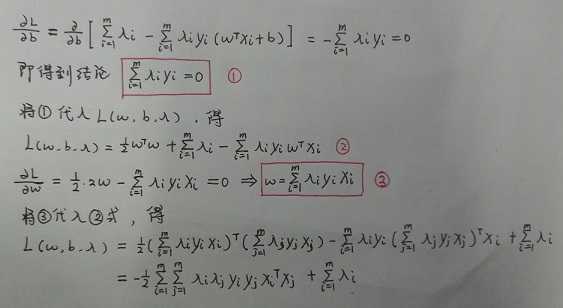 ∂L/∂b = ∂/∂b [ ∑_{i=1}^{m} λi − ∑_{i=1}^{m} λi yi (wᵀxi + b) ] = − ∑_{i=1}^{m} λi yi = 0
即得到结论 ∑_{i=1}^{m} λi yi = 0 ①
将①代入 L(w, b, λ), 得
L(w, b, λ) = ½wᵀw + ∑_{i=1}^{m} λi − ∑_{i=1}^{m} λi yi wᵀxi ②
∂L/∂w = ½·2w − ∑_{i=1}^{m} λi yi xi = 0 ⇒ w = ∑_{i=1}^{m} λi yi xi ③
将③代入②式, 得
L(w, b, λ) = ½(∑_{i=1}^{m} λi yi xi)ᵀ(∑_{j=1}^{m} λj yj xj) − ∑_{i=1}^{m} λi yi (∑_{j=1}^{m} λj yj xj)ᵀ xi + ∑_{i=1}^{m} λi
= −½ ∑_{i=1}^{m} ∑_{j=1}^{m} λi λj yi yj xiᵀxj + ∑_{i=1}^{m} λi